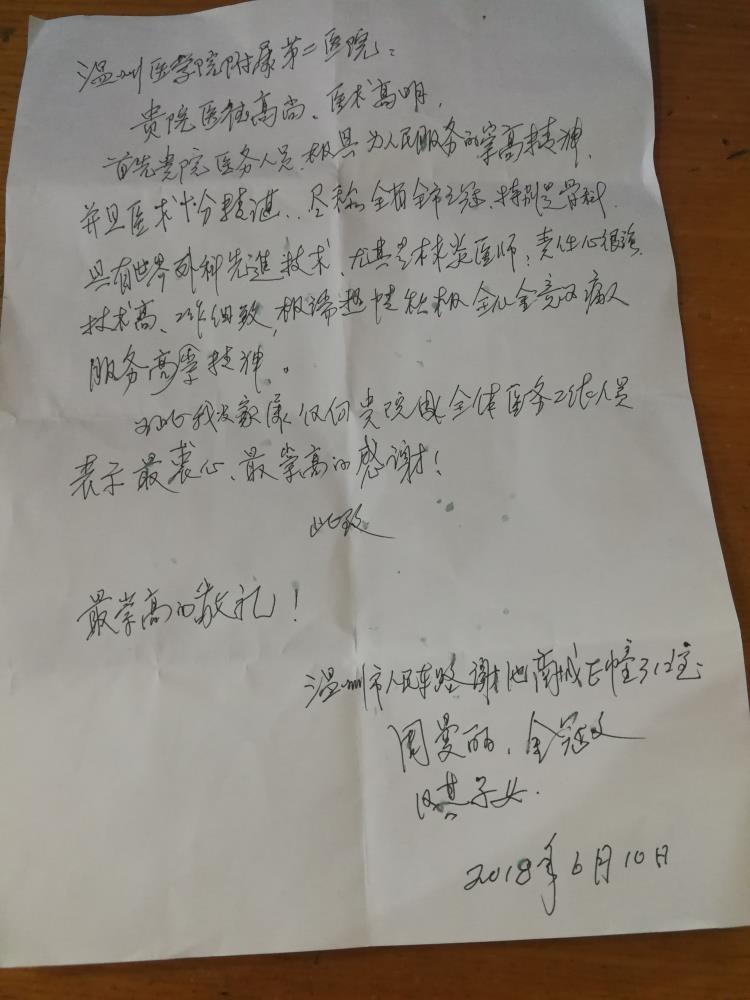 温州医学院附属第二医院：
贵院医德高尚、医术高明，
首先贵院医务人员，极具为人民服务的崇高精神，
并且医术十分精湛，尽称全省全市之冠、特别是骨科
具有世界外科先進技术，尤其是林炎医师，责任心很强，
技术高、工作细致，极端热情积极全心全意为病人
服务高
精神。
为此我发家属仅向贵院
全体医务工作人员
表示最衷心、最崇高的感谢！
此致
最崇高的敬礼！
温州市人民东路谢池商城
幢312室
周曼丽、金冠
及其子女.
2018年6月10日